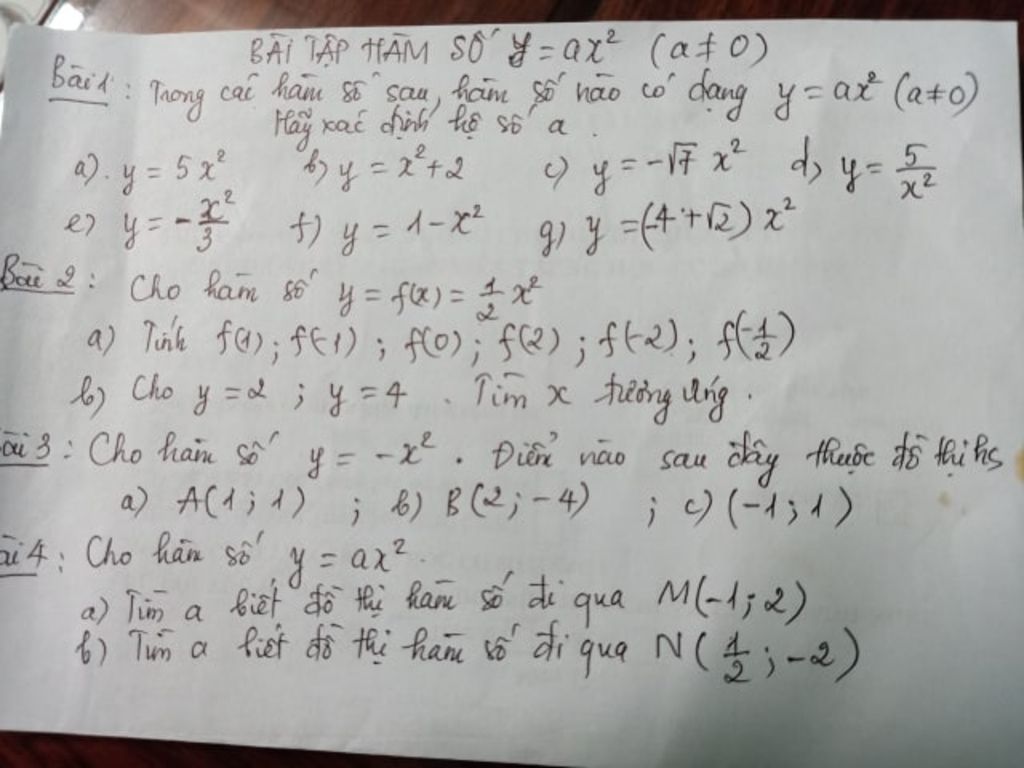 BÀI TẬP HÀM SỐ y = ax² (a ≠ 0)
Bài 1: Trong các hàm số sau, hàm số nào có dạng y = ax² (a ≠ 0)
Hãy xác định hệ số a.
a). y = 5x² b) y = x² + 2 c) y = -√7 x² d) y = 5/x²
e) y = -x²/3 f) y = 1 - x² g) y = (-4 + √2) x²
Bài 2: Cho hàm số y = f(x) = 1/2 x²
a) Tính f(1); f(-1); f(0); f(2); f(-2); f(-1/2)
b) Cho y = 2; y = 4. Tìm x tương ứng.
ài 3: Cho hàm số y = -x². Điểm nào sau đây thuộc đồ thị hs
a) A(1; 1) ; b) B(2; -4) ; c) (-1; 1)
ài 4: Cho hàm số y = ax².
a) Tìm a biết đồ thị hàm số đi qua M(-1; 2)
b) Tìm a biết đồ thị hàm số đi qua N(1/2; -2)